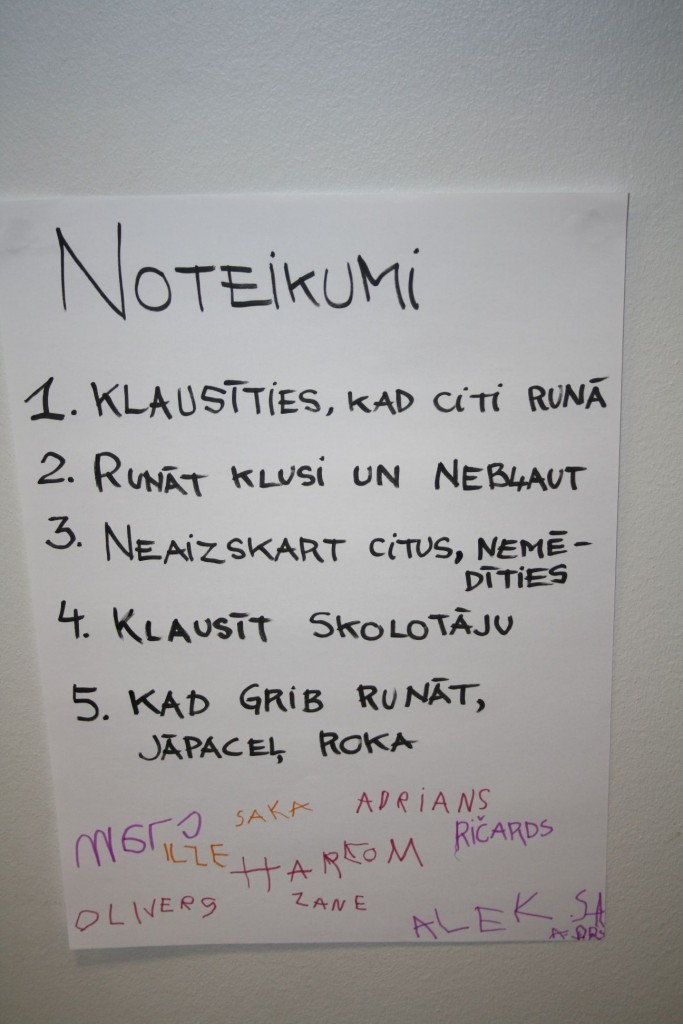 NOTEIKUMI
1. KLAUSĪTIES, KAD CITI RUNĀ
2. RUNĀT KLUSI UN NEBĻAUT
3. NEAIZSKART CITUS, NEMĒ-
DĪTIES
4. KLAUSĪT SKOLOTĀJU
5. KAD GRIB RUNĀT,
JĀPACEĻ ROKA
SAKA ADRIANS
ILZE HARKOM RIČARDS
OLIVERS ZANE
ALEK SA